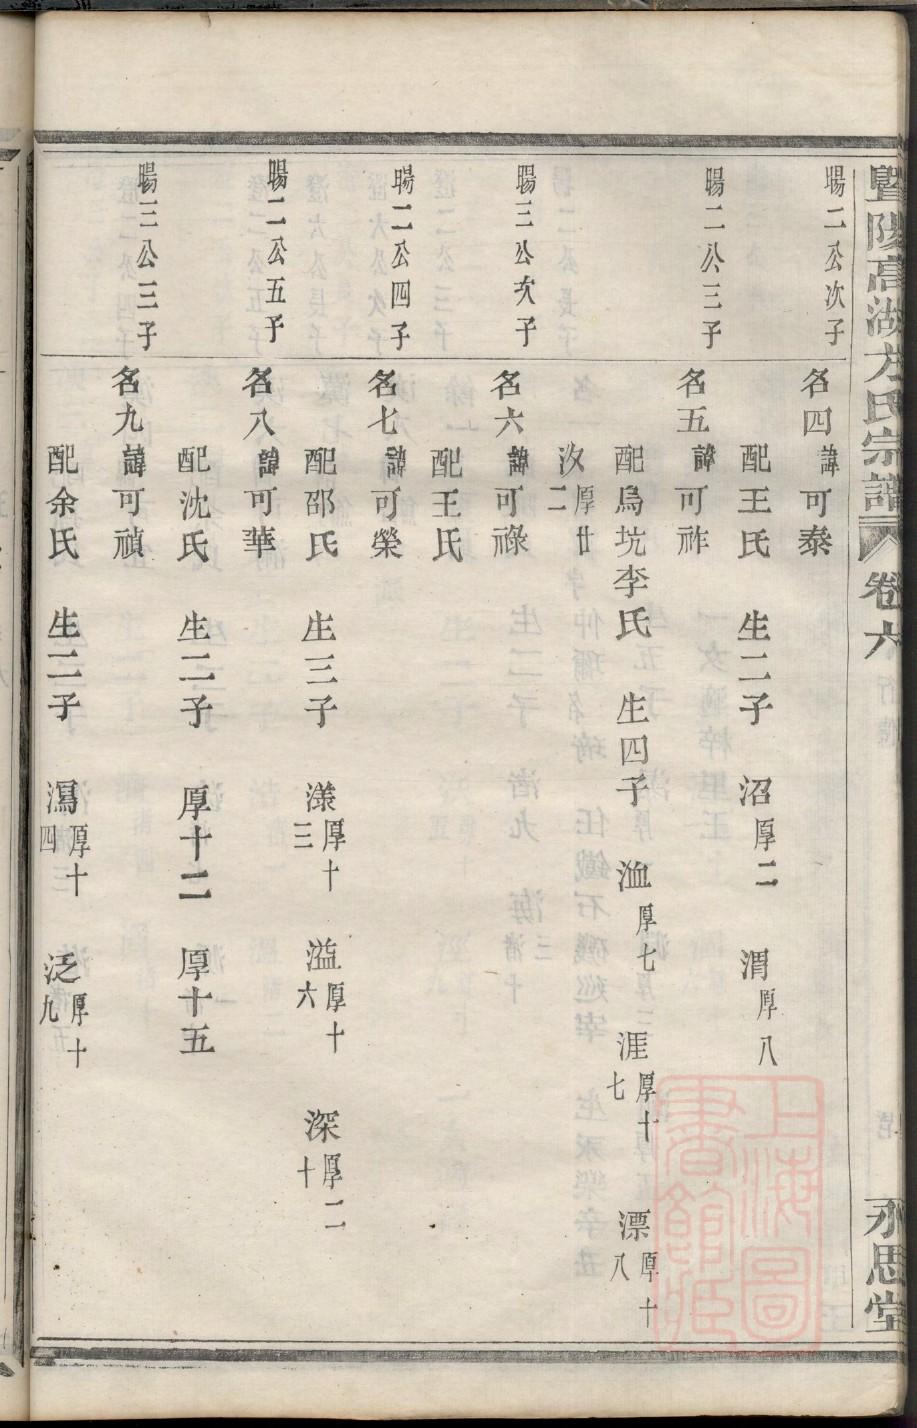 暨陽高湖方氏宗譜 卷六 永思堂
暘二公次子
名四諱可泰
配王氏 生二子 沼厚二 渭厚八
暘二公三子
名五諱可祚
配烏坑李氏 生四子 洫厚七 涯厚十七 漂厚十八
汝厚廿二
暘三公次子
名六諱可祿
配王氏
暘二公四子
名七諱可榮
配邵氏 生三子 漾厚十三 溢厚十六 深厚二十
暘二公五子
名八諱可華
配沈氏 生二子 厚十二 厚十五
暘三公三子
名九諱可禎
配余氏 生二子 瀉厚十四 泛厚十九
上海圖書館藏